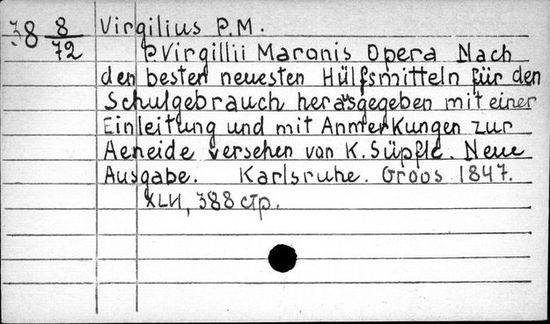 38 8/72 Virgilius P.M.
P Virgillii Maronis Opera Nach
den besten neuesten Hülfsmitteln für den
Schulgebrauch herausgegeben mit einer
Einleitung und mit Anmerkungen zur
Aeneide versehen von K. Süpfle. Neue
Ausgabe. Karlsruhe. Groos 1847.
XLVI, 388 стр.